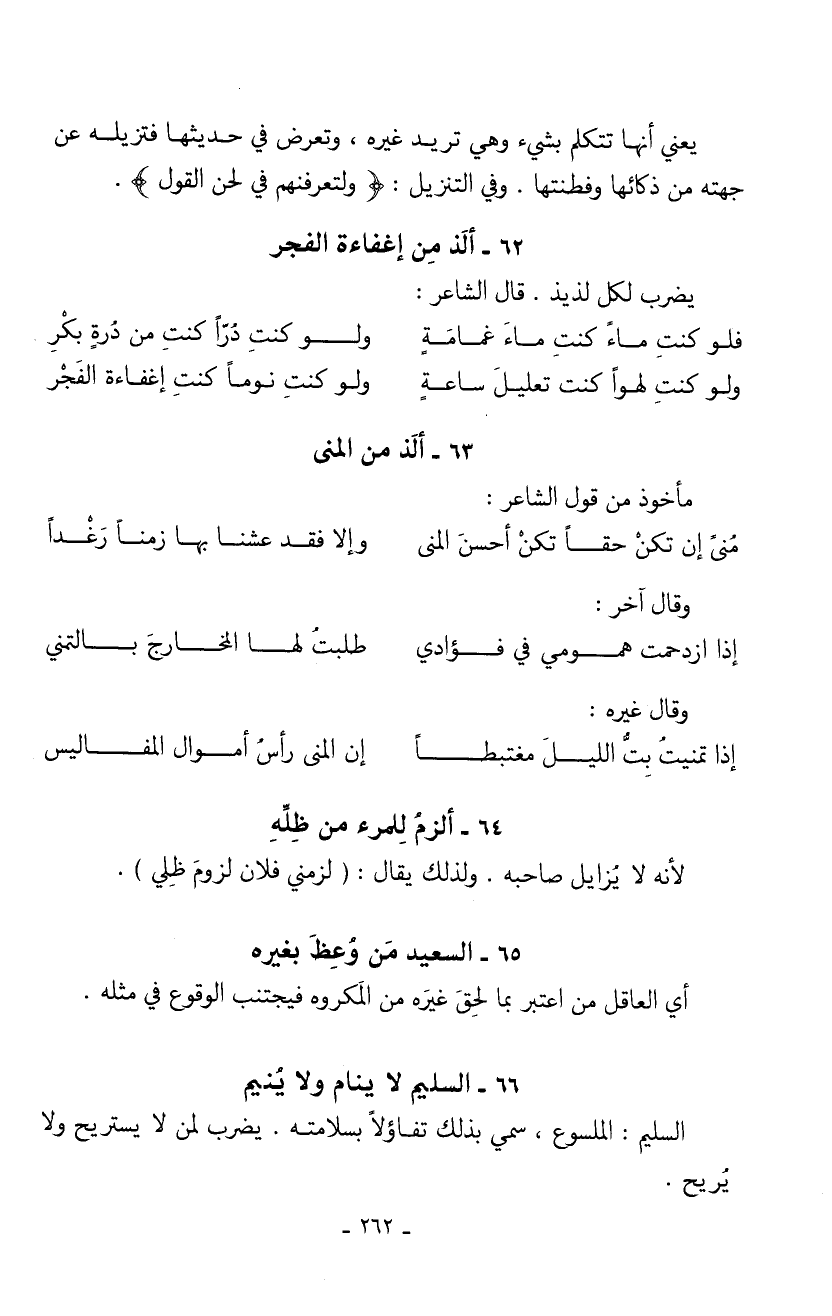 يعني أنها تتكلم بشيء وهي تريد غيره ، وتعرض في حديثها فتزيله عن
جهته من ذكائها وفطنتها . وفي التنزيل : ﴿ ولتعرفنهم في لحن القول ﴾ .
٦٢ ـ ألَذ مِن إغفاءة الفجر
يضرب لكل لذيذ . قال الشاعر :
فلو كنتِ ماءً كنتِ ماءَ غمامَةٍ ولو كنتِ دُرّاً كنتِ من دُرةٍ بكْرِ
ولو كنتِ لهواً كنت تعليلَ ساعةٍ ولو كنتِ نوماً كنتِ إغفاءة الفَجْرِ
٦٣ ـ ألَذ من المنى
مأخوذ من قول الشاعر :
مُنىً إن تكنْ حقاً تكنْ أحسنَ المنى وإلا فقد عشنا بها زمناً رَغْداً
وقال آخر :
إذا ازدحمت همومي في فؤادي طلبتُ لها المخارجَ بالتمني
وقال غيره :
إذا تمنيتُ بِتُّ الليلَ مغتبطاً إن المنى رأسُ أموال المفاليس
٦٤ ـ ألزمُ لِلمرء من ظِلِّهِ
لأنه لا يُزايل صاحبه . ولذلك يقال : ( لزمني فلان لزومَ ظلي ) .
٦٥ ـ السعيد مَن وُعِظَ بغيره
أي العاقل من اعتبر بما لحِقَ غيرَه من المَكروه فيجتنب الوقوع في مثله .
٦٦ ـ السليم لا ينام ولا يُنيم
السليم : الملسوع ، سمي بذلك تفاؤلاً بسلامته . يضرب لمن لا يستريح ولا
يُريح .
ـ ٢٦٢ ـ